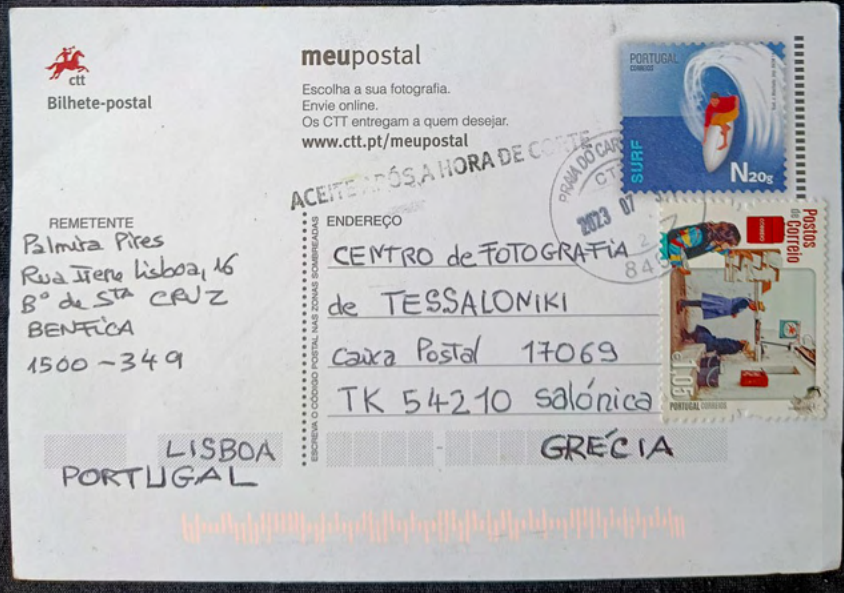 ctt
Bilhete-postal
meupostal
Escolha a sua fotografia.
Envie online.
Os CTT entregam a quem desejar.
www.ctt.pt/meupostal
ACEITE APÓS A HORA DE CORTE
PORTUGAL
CORREIOS
SURF
N20g
PRAIA DO CAR
CTT
2023 07
2
849
Postos
de Correio
€1.05
PORTUGAL CORREIOS
REMETENTE
Palmira Pires
Rua Irene Lisboa, 16
Bº de STA CRUZ
BENFICA
1500-349
LISBOA
PORTUGAL
ESCREVA O CÓDIGO POSTAL NAS ZONAS SOMBREADAS
ENDEREÇO
CENTRO de FOTOGRAFIA
de TESSALONIKI
Caixa Postal 17069
TK 54210 Salónica
-
GRÉCIA